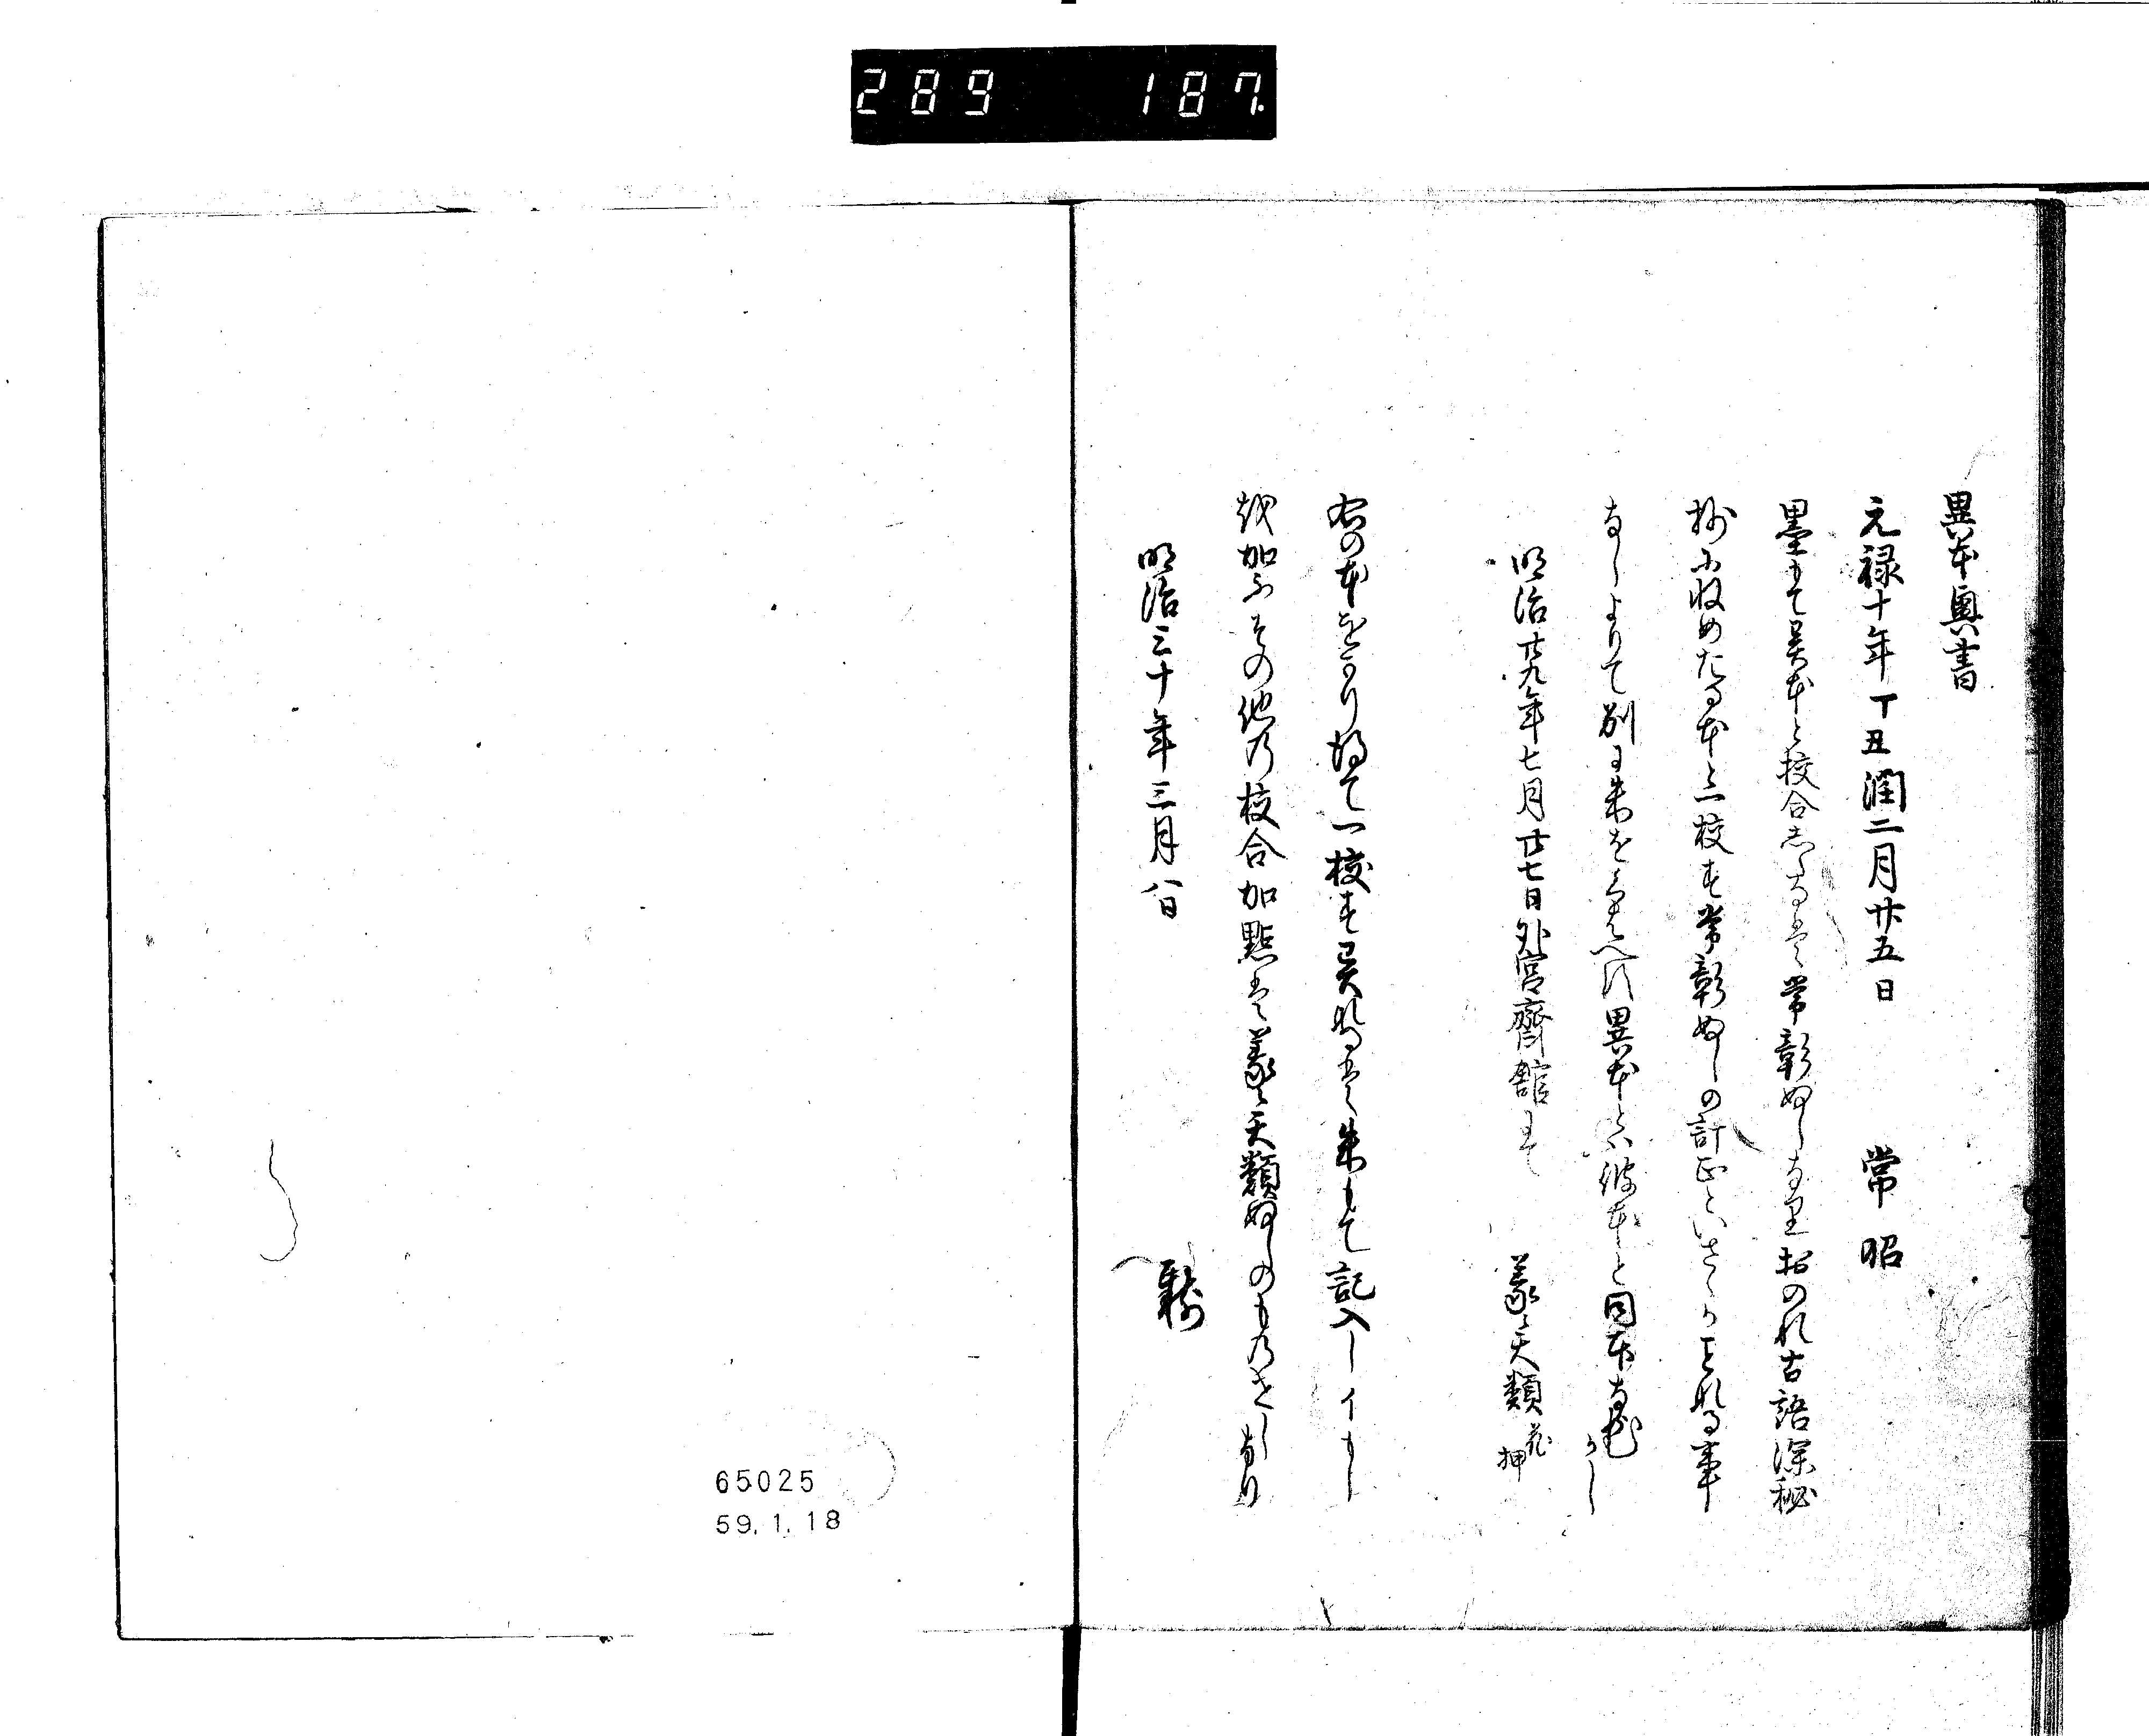 289 187.
異本奥書
元禄十年丁丑潤二月廿五日 常昭
墨もて異本と校合志たるは常彰ぬしなり おのれ古語深秘
抄に収めたる本と一校す常彰ぬしの計正といさゝか異れる事
なしよりて別に朱をくはへす異本とハ彼本と同本なるへし
明治廿九年七月廿七日外宮齋館にて 天類 花押
右の本をかり得て一校す異れるは朱もて記入しイもし
越加ふその他乃校合加點は 天類ぬしのものせしなり
明治三十年三月八日
65025
59.1.18